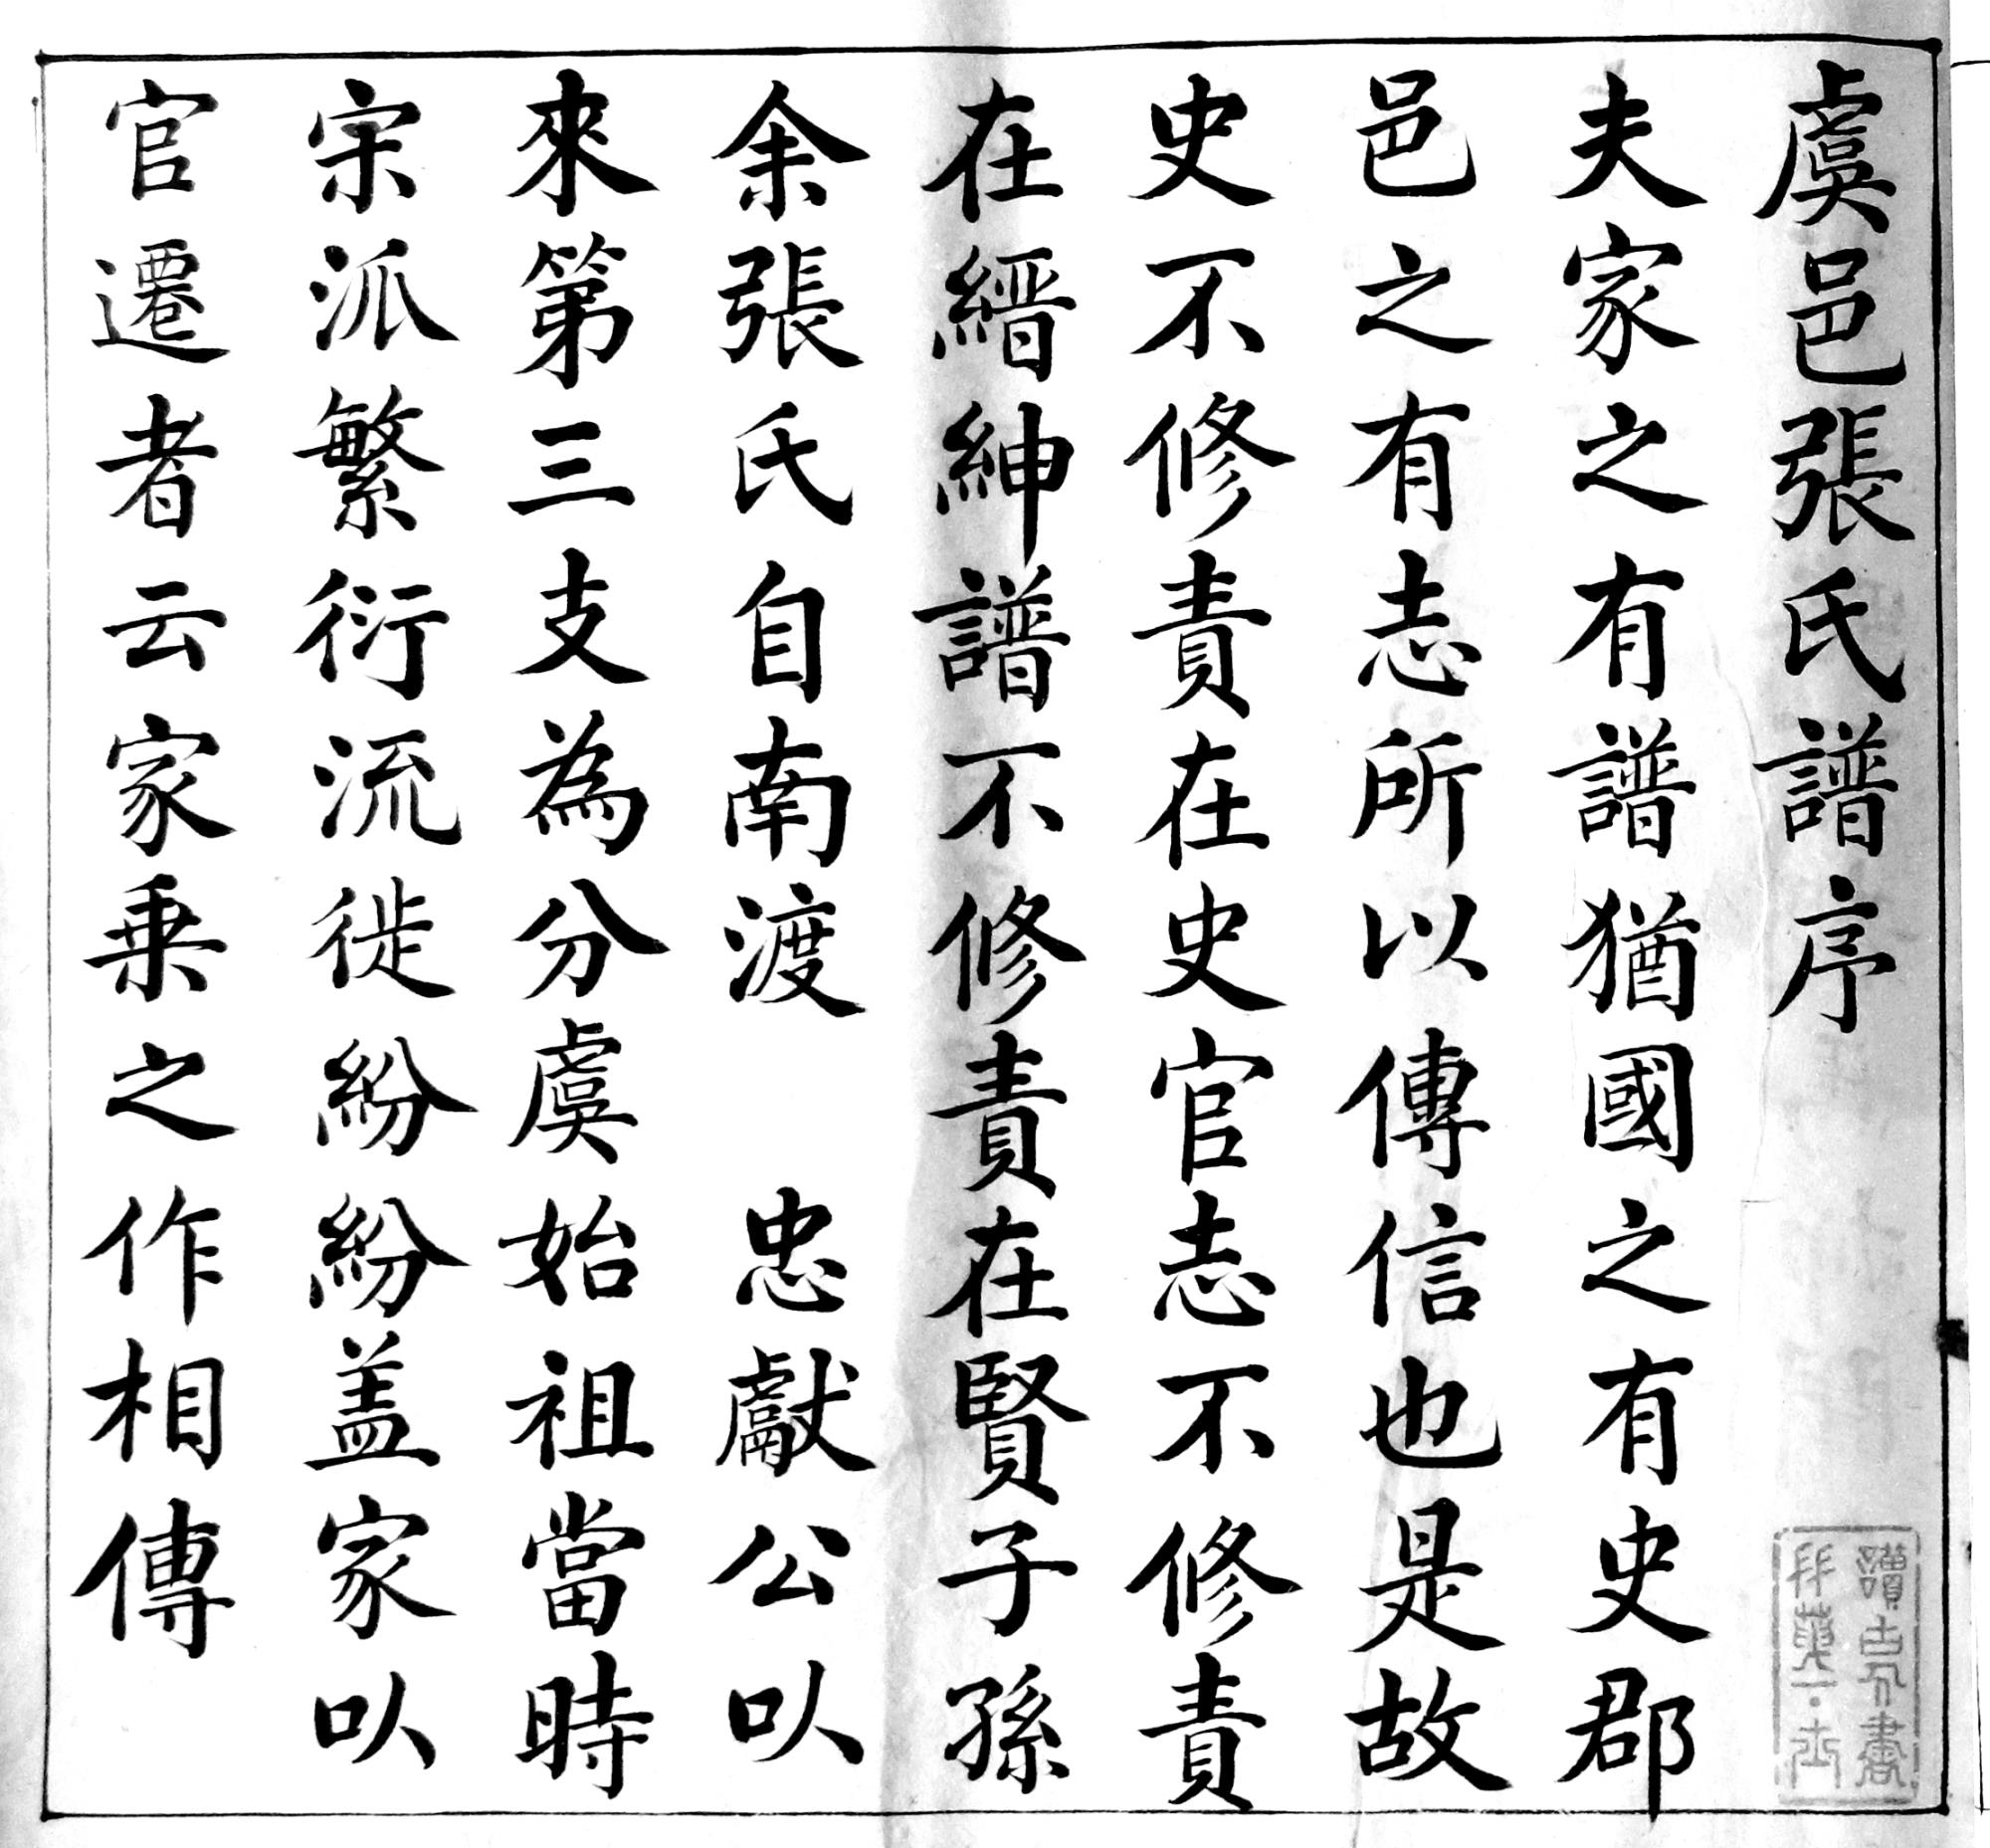 虞邑張氏譜序
夫家之有譜猶國之有史郡
邑之有志所以傳信也是故
史不修責在史官志不修責
在縉紳譜不修責在賢子孫
余張氏自南渡　忠獻公以
來第三支為分虞始祖當時
宗派繁衍流徙紛紛盖家以
官遷者云家乗之作相傳